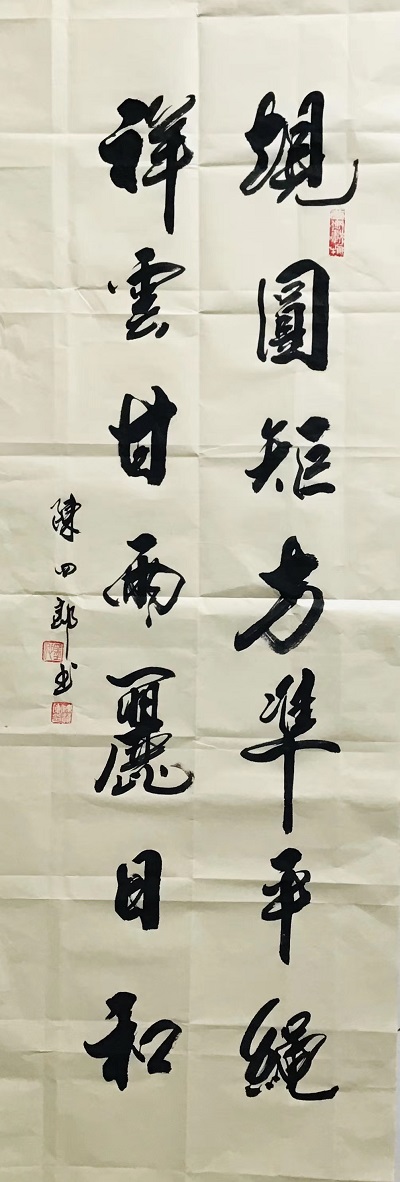 規圓矩方準平繩
祥雲甘雨麗日和
陳四郎書